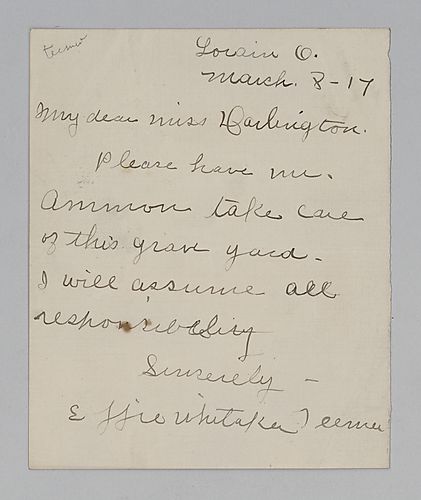 Teemer
Lorain O.
March. 8-17
My dear miss Darlington.
Please have mr.
Ammon take care
of this grave yard -
I will assume all
responsibility
Sincerely -
Effie Whitaker Teemer